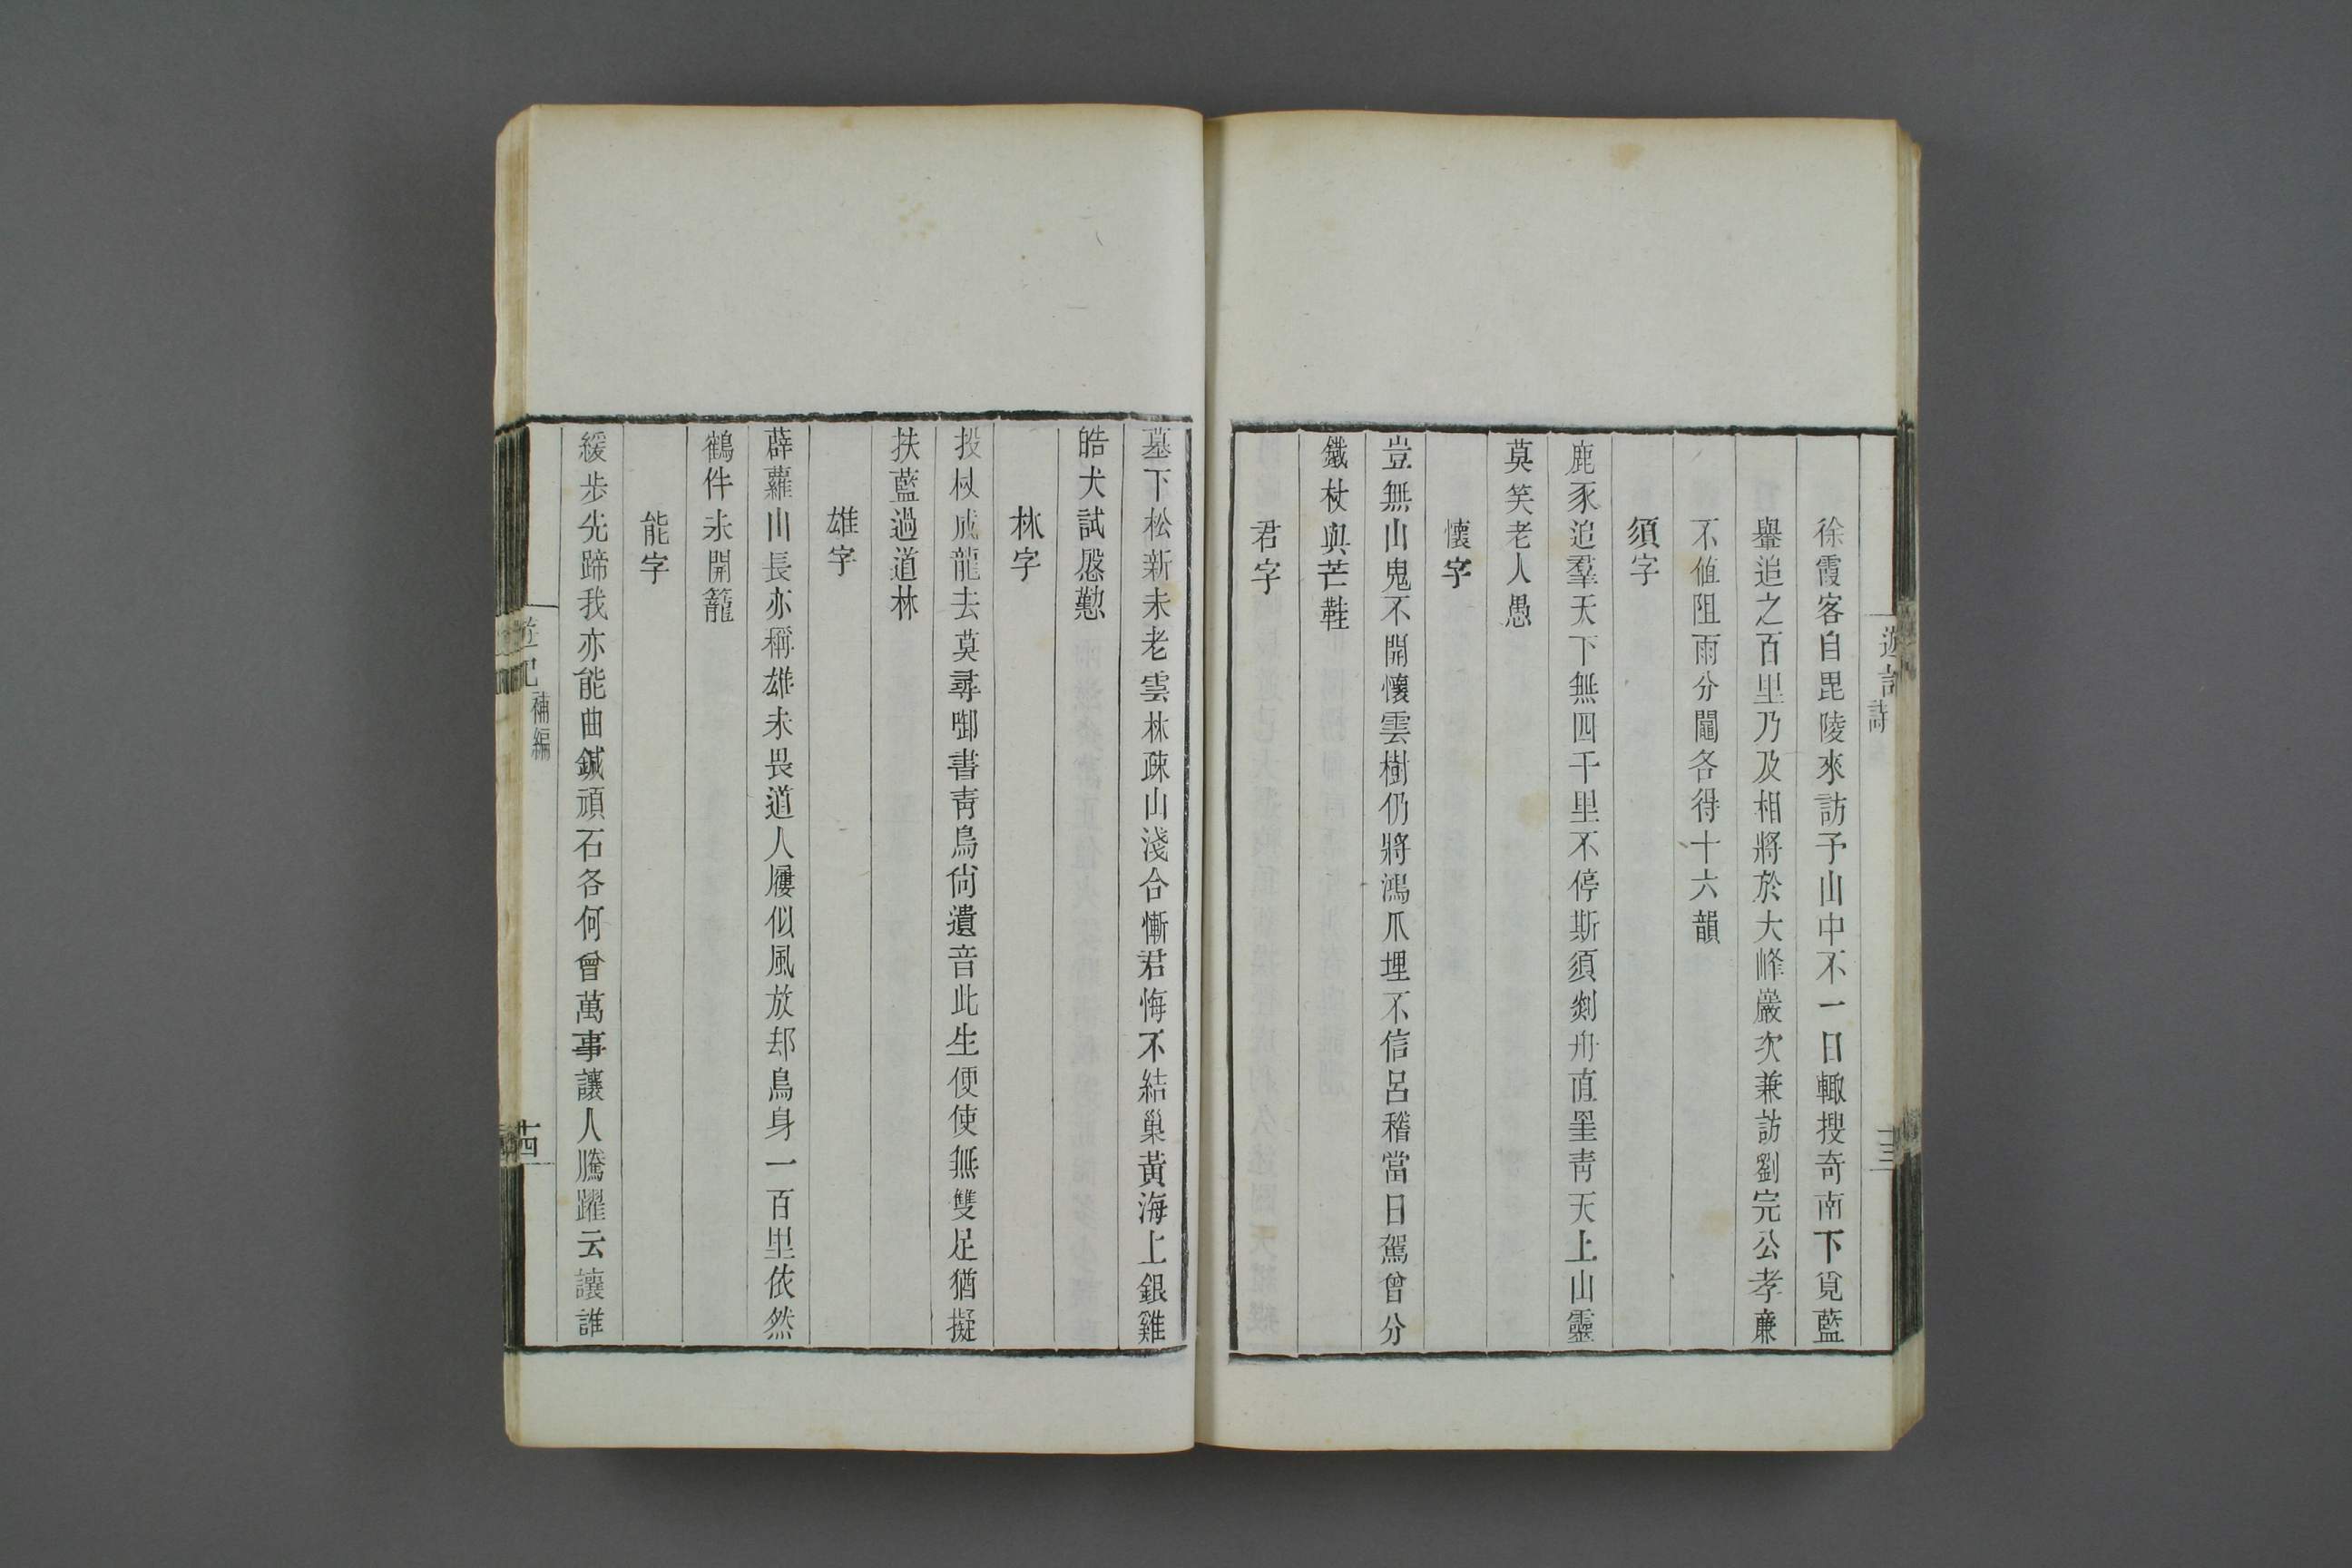 遊記
詩
十三
徐霞客自毘陵來訪予山中不一日輙搜奇南下覓藍
轝追之百里乃及相將於大峰巖次兼訪劉完公孝廉
不值阻雨分鬮各得十六韻
須字
鹿豕追羣天下無四千里不停斯須剡舟直𦊱青天上山靈
莫笑老人愚
懷字
豈無山鬼不開懷雲樹仍將鴻爪埋不信呂稽當日駕曾分
鐵杖與芒鞋
君字
墓下松新未老雲林疎山淺合慚君悔不結巢黃海上銀雞
皓犬試慇懃
林字
投杖成龍去莫尋啣書靑鳥尙遺音此生便使無雙足猶擬
扶藍過道林
雄字
薜蘿山長亦稱雄未畏道人屨似風放却鳥身一百里依然
鶴件未開籠
能字
緩步先蹄我亦能曲鍼頑石各何曾萬事讓人騰躍云讓誰
遊記
補編
十四